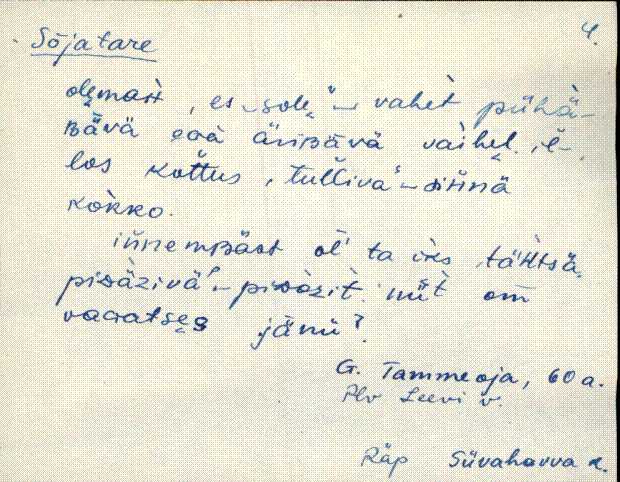 4.
Sõjatare
olęmast, es ‿solę‿ vahèt pühä-
Bävä eGà äriBävä vaìhel, ĕ-
los kòttus, tulliva‿siǹnä
kokko.
iǹnemBäst ol̀ ta üks tähtsä.
pidäzivä‿pidòzit nüt om
vaGatses jänü?
G. Tammeoja, 60 a.
Plv Leevi v.
Räp Süvahavva k.